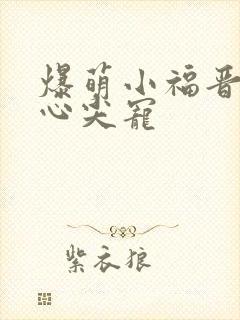 爆萌小福晋
心尖宠
紫衣狼